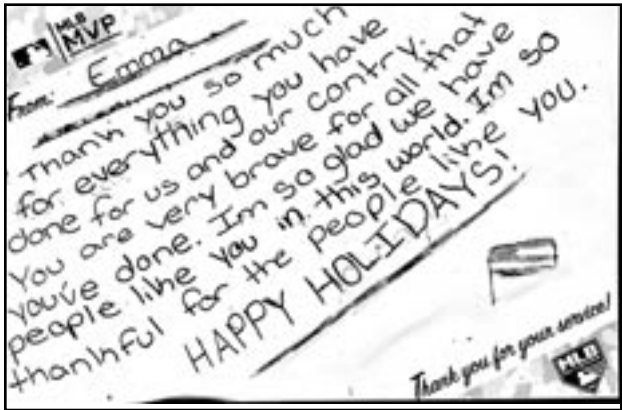 MLB
MVP
From: Emma
Thank you so much
for everything you have
done for us and our contry.
You are very brave for all that
you've done. Im so glad we have
people like you in this world. Im so
thankful for the people like you.
HAPPY HOLIDAYS!
Thank you for your service!
MLB